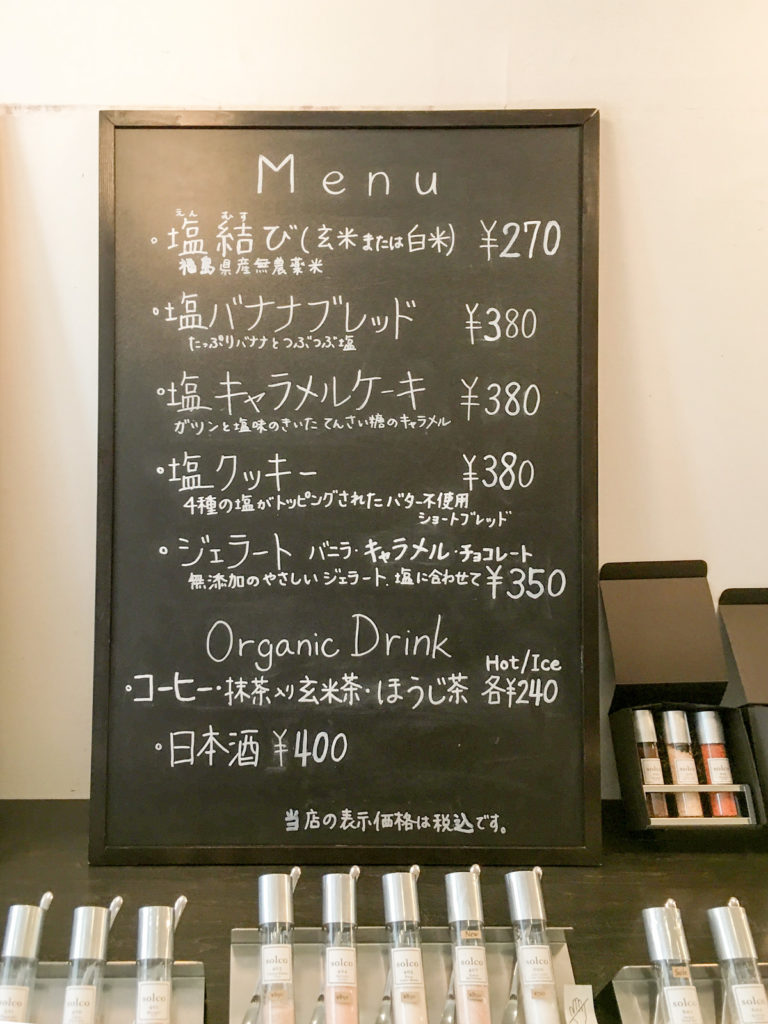 Menu
えん むす
。塩結び(玄米または白米) ¥270
福島県産無農薬米
。塩バナナブレッド ¥380
たっぷりバナナとつぶつぶ塩
。塩キャラメルケーキ ¥380
ガツンと塩味のきいた てんさい糖のキャラメル
。塩クッキー ¥380
4種の塩がトッピングされた バター不使用
ショートブレッド
。ジェラート バニラ・キャラメル・チョコレート
無添加のやさしい ジェラート. 塩に合わせて ¥350
Organic Drink
Hot/Ice
・コーヒー・抹茶入り玄米茶・ほうじ茶 各¥240
。日本酒 ¥400
当店の表示価格は税込です。
solco
solco
solco
solco
solco
solco
solco
New
solco
solco
solco
solco
solco
solco